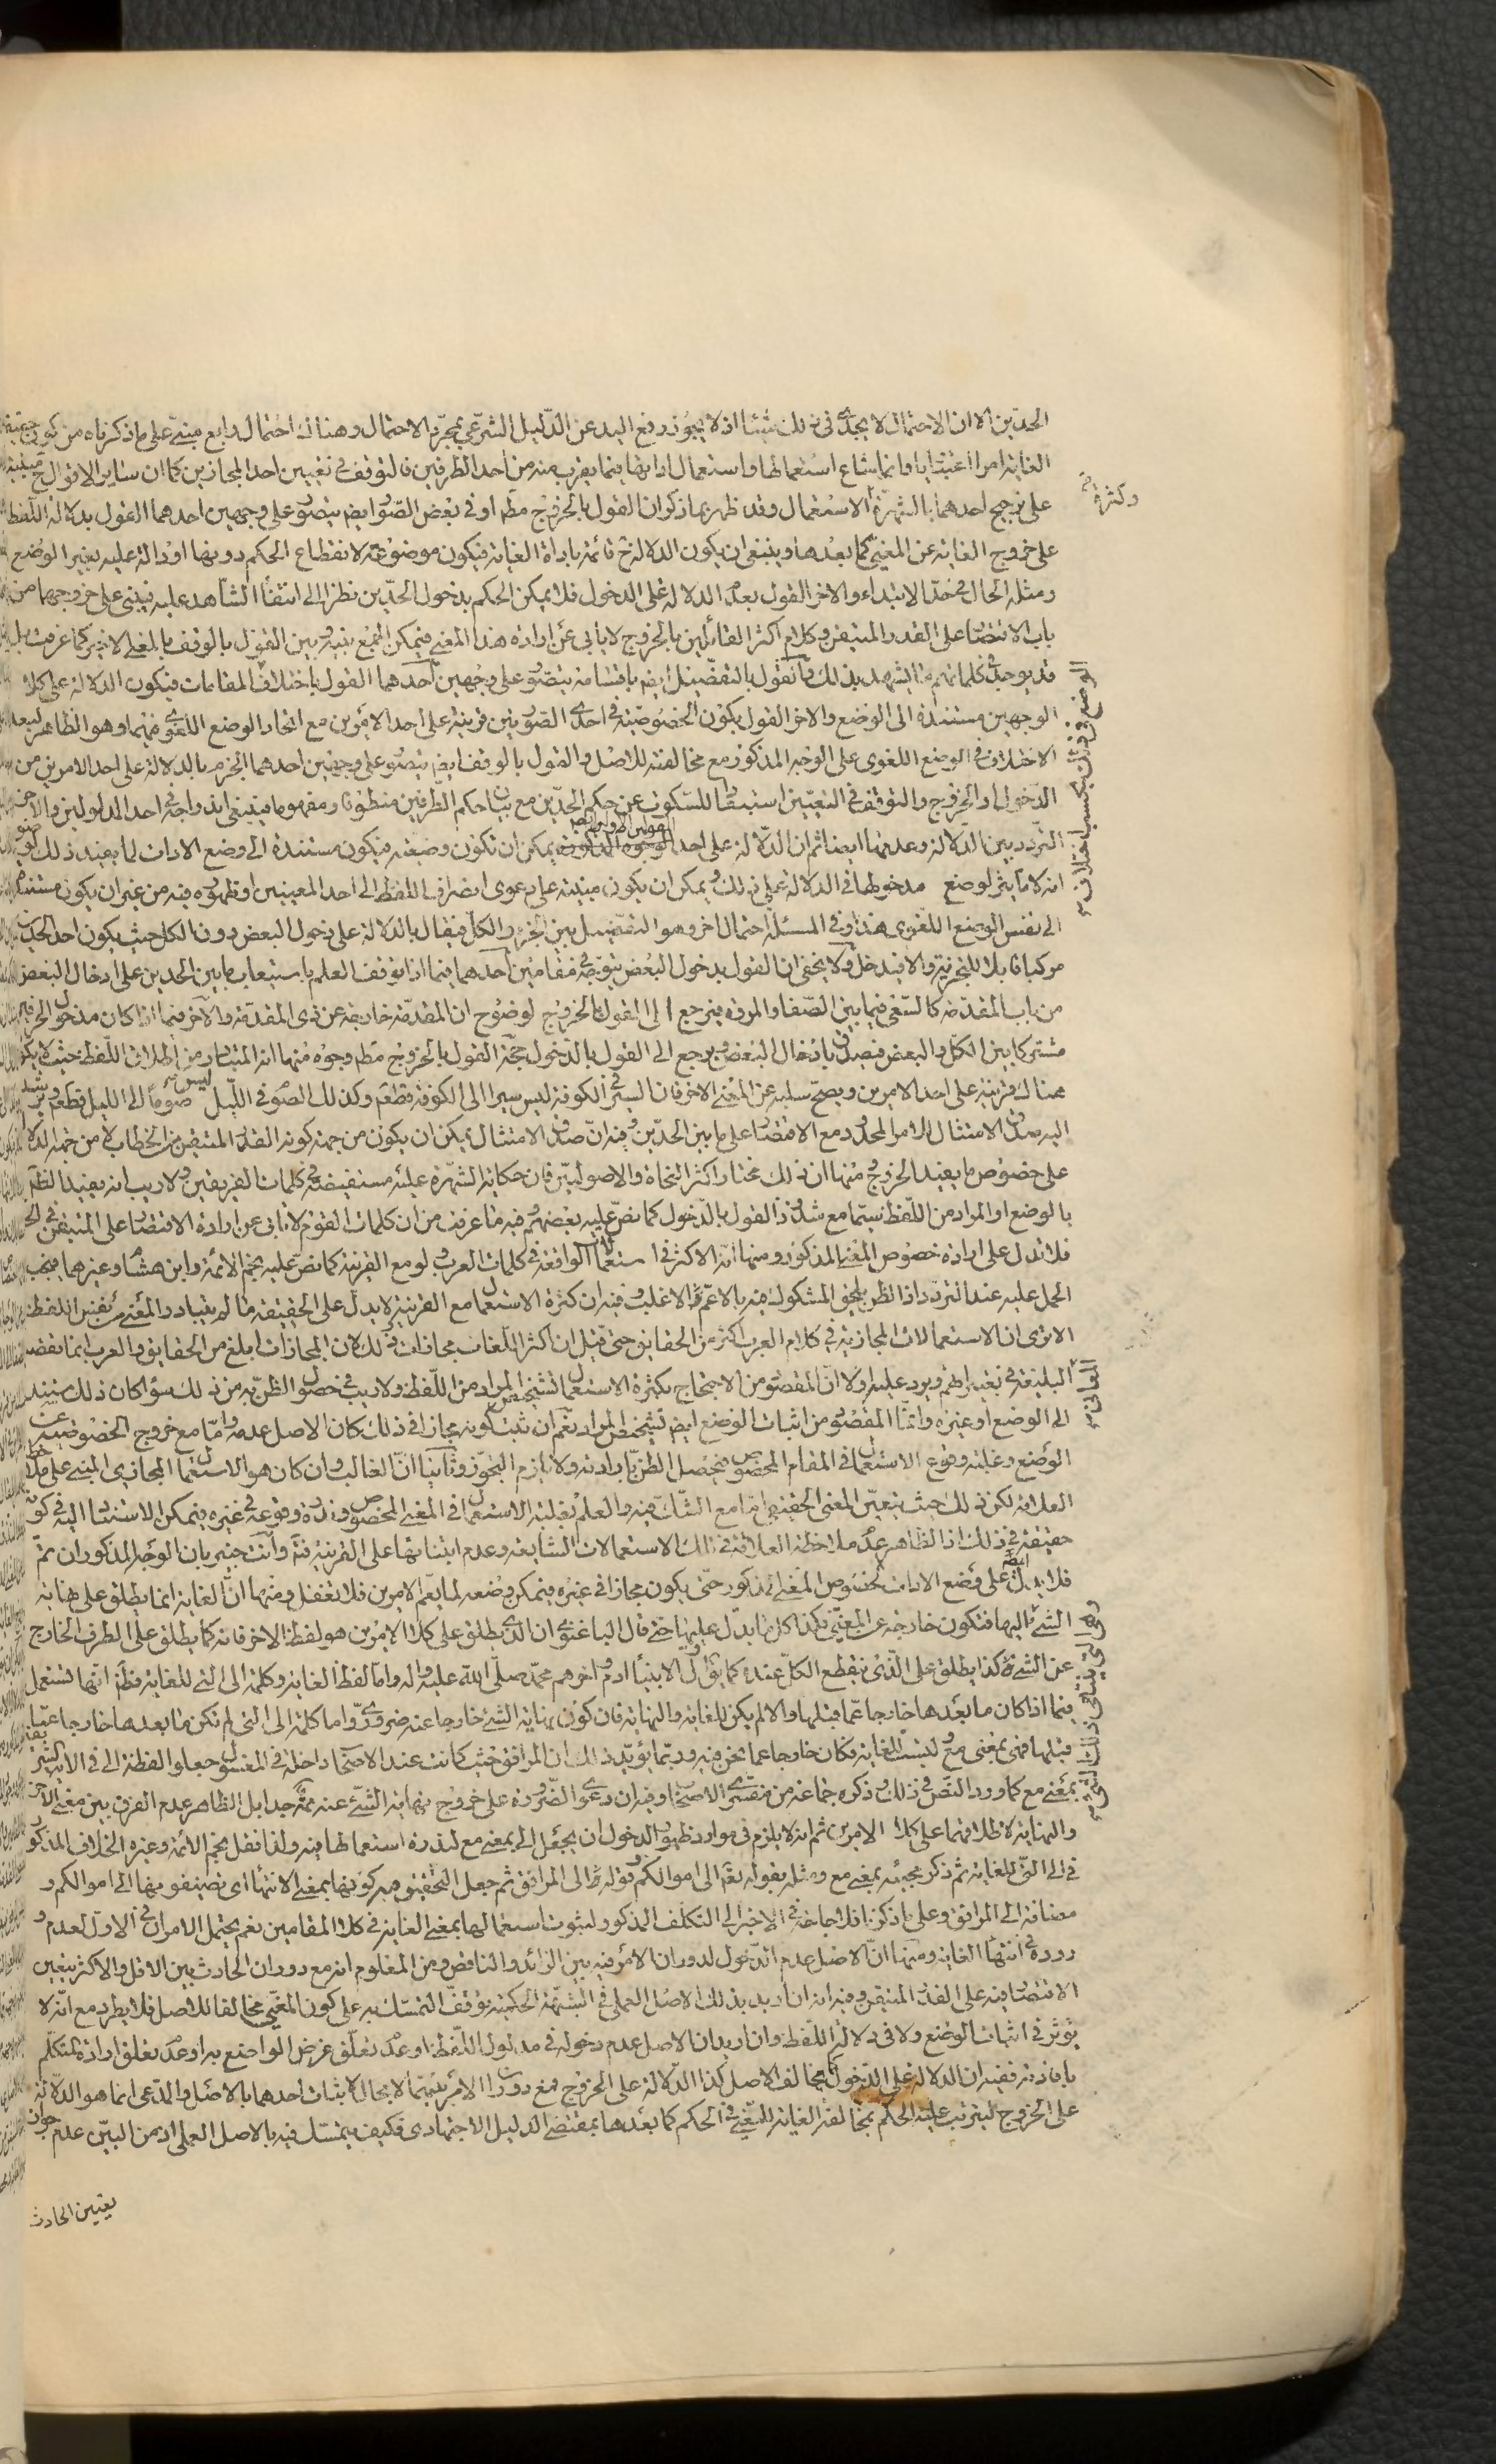 الحدّين الا ان الاحتمال لا يجدى فى ذلك شيئا اذ لا يجوز رفع اليد عن الدّليل الشرعّى بمجرّد الاحتمال وهناك احتمال رابع مبنىّ على ما ذكرناه من كون
الغاية امرا اعتباريا وانما شاع استعمالها واستعمال اداتها فيما يقرب منه من احد الطرفين فالتوقف فى تعيين احد المجازين كما ان ساير الاقوال مبنية
على ترجيح احدهما بالشهرة الاستعمال وقد ظهر بما ذكر ان القول بالخروج مطم او فى بعض الصّور ايضم يتصوّر على وجهين احدهما القول بدلالة اللّفظ
وكثرة
على خروج الغاية عن المغيّى كما بعدها وينبغى ان يكون الدلالة ح قائمة باداة الغاية فيكون موضوعة لانقطاع الحكم دونها او دالة عليه بغير الوضع
ومثله الحال فى حدّ الابتداء والاخر القول بعدم الدلالة على الدخول فلا يمكن الحكم بدخول الحدّين نظرا الى انتفاء الشاهد عليه فيبنى على خروجهما من
باب الاقتصار على القدر المتيقن وكلام اكثر القائلين بالخروج لا يابى عن ارادة هذا المعنى فيمكن الجمع بينه وبين القول بالوقف بالمعنى الاخير كما عرفت بل
قد يوجد فى كلماتهم ما يشهد بذلك والقول بالتفصيل ايضم باقسامه يتصوّر على وجهين احدهما القول باختلاف المقامات فيكون الدلالة على كلا
الوجهين مستندة الى الوضع والاخر القول بكون الخصوصيّة فى احدى الصّورتين قرينة على احد الامرين مع اتحاد الوضع اللغوى فيهما وهو الظاهر لبعد
الاختلاف فى الوضع اللغوى على الوجه المذكور مع مخالفته للاصل والقول بالوقف ايضم يتصوّر على وجهين احدهما الجزم بالدلالة على احد الامرين من
الدّخول او الخروج والتوقف فى التعيين استبعادا للسّكوت عن حكم الحدّين مع بيان حكم الطّرفين منطوقا ومفهوما فينبغى اندراجه فى احد المدلولين والاخر
التردّد بين الدّلالة وعدمها ايضا ثم ان الدّلالة على احد القولين الاولين يمكن ان تكون وضعيّة فيكون مستندة الى وضع الادات لما يفيد ذلك
انه لا تاثير لوضع مدخولها فى الدلالة على ذلك ويمكن ان يكون مبنيّة على دعوى انصراف اللفظ الى احد المعنيين او ظهوره فيه من غير ان يكون مستندة
الى نفس الوضع اللّغوى هذا وفى المسئلة احتمال اخر وهو التفصيل بين الجزء والكلّ فيقال بالدلالة على دخول البعض دون الكل حيث يكون احد الحدين
مركبا قابلا للتجزية والا فيدخل ولا يخفى ان القول بدخول البعض يتوجّه فى مقامين احدهما فيما اذا توقف العلم باستيعاب ما بين الحدين على ادخال البعض
من باب المقدّمة كالسّعى فيما بين الصّفا والمروة فيرجع الى القول بالخروج لوضوح ان المقدّمة خارجة عن ذى المقدّمة والآخر فيما اذا كان مدخول الحرف
مشتركا بين الكلّ والبعض فيصدق بادخال البعض ويرجع الى القول بالدّخول حجّة القول بالخروج مطم وجوه منها انه المتبادر من اطلاق اللّفظ حيث لا يكون
هناك قرينة على احد الامرين ويصحّ سلبه عن المعنى الاخر فان السير فى الكوفة ليس سيرا الى الكوفة قطعم وكذلك الصّوم فى اللّيل ليس صوما الى الليل قطعم
اليه صدق الامتثال للامر المحدود مع الاقتصار على ما بين الحدّين وفيه ان صدق الامتثال يمكن ان يكون من جهة كونه القدر المتيقن من الخطاب لا من جهة الدلالة
على خصوص ما يفيد الخروج ومنها ان ذلك مختار اكثر النحاة والاصوليّين فان حكاية الشهرة عليه مستفيضة فى كلمات الفريقين ولا ريب انه يفيد الظنّ
بالوضع او المراد من اللّفظ سيّما مع شذوذ القول بالدّخول كما نصّ عليه بعضهم وفيه ما عرفت من ان كلمات القوم لا تابى عن ارادة الاقتصار على المتيقن فى الحكم
فلا تدل على ارادة خصوص المعنى المذكور ومنها انه الاكثر فى استعمالات الواقعة فى كلمات العرب ولو مع القرينة كما نصّ عليه نجم الائمّة وابن هشام وغيرهما فيتعيّن
الحمل عليه عند التردّد اذ الظنّ يلحق المشكوك فيه بالاعمّ والاغلب وفيه ان كثرة الاستعمال مع القرينة لا يدلّ على الحقيقة ما لم يتبادر المعنى من نفس اللفظ
الا ترى ان الاستعمالات المجازية فى كلام العرب اكثر من الحقايق حتى قيل ان اكثر اللّغات مجازات وذلك لان المجازات ابلغ من الحقايق والعرب انما تقصد
البليغة فى تعبيراتهم ويرد عليه اوّلا انّ المقصود من الاحتجاج بكثرة الاستعمال تشخيص المراد من اللّفظ ولا ريب فى حصول الظنّ به من ذلك سواء كان ذلك مستندا
المعانى
الى الوضع او غيره وانّما المقصود من اثبات الوضع ايضم تشخيص المراد نعم ان ثبت كونه مجازا فى ذلك كان الاصل عدمه وامّا مع خروج الخصوصيّة عن
الوضع وغلبة وقوع الاستعمال فى المقام المخصوص فيحصل الظنّ بارادته ولا يلزم التجوّز وثانيا انّ الغالب وان كان هو الاستعمال المجازى المبنى على ملاحظة
العلاقة لكن ذلك حيث يتعيّن المعنى الحقيقى امّا مع الشّك فيه والعلم بغلبة الاستعمال فى المعنى المخصوص وندرة وقوعه فى غيره فيمكن الاستناد اليه فى كونه
حقيقة فى ذلك اذ الظّاهر عدم ملاحظة العلاقة فى تلك الاستعمالات الشايعة وعدم ابتنائها على القرينة فتم وانت خبير بان الوجه المذكور ان تمّ
فلا يدلّ ايضم على وضع الادات لخصوص المعنى المذكور حتى يكون مجازا فى غيره فيمكن وضعه لما يعمّ الامرين فلا تغفل ومنها انّ الغاية انما يطلق على نهاية
الشئ اليها فتكون خارجة عن المغيّى فكذا كل ما يدلّ عليها حتى قال الباغنوى ان الذى يطلق على كلا الامرين هو لفظ الاخر فانه كما يطلق على الطرف الخارج
عن الشئ كذا يطلق على الّذى ينقطع الكلّ عنده كما يقال اوّل الانبياء ادم واخرهم محمّد صلّى الله عليه واله وامّا لفظ الغاية وكلمة الى التى للغاية فظم انّها تستعمل
فيما اذا كان ما بعدها خارجا عمّا قبلها والا لم يكن للغاية والنهاية فان كون نهاية الشئ خارجا عنه ضرورىّ واما كلمة الى التى لم تكن ما بعدها خارجا عمّا
قبلها فهى بمعنى مع وليست للغاية فكان خارجا عما نحن فيه وربّما يؤيّد ذلك ان المرافق حيث كانت عند الاصحاب داخلة فى المغسول جعلوا لفظة الى فى الاية
بمعنى مع كما ورد النصّ فى ذلك وذكره جماعة من مفسّرى الاصحاب وفيه ان دعوى الضّرورة على خروج نهاية الشّئ عنه ممنوعة جدا بل الظاهر عدم الفرق بين معنى الاخر
والنهاية لاطلاقهما على كلا الامرين ثم انه لا يلزم فى موارد ظهور الدخول ان يجعل الى بمعنى مع لندرة استعمالها فيه ولذا نقل نجم الائمة وغيره الخلاف المذكور
فى الى التى للغاية ثم ذكر مجيئه بمعنى مع ومثله بقوله تعم الى اموالكم وقوله تم الى المرافق ثم جعل التحقيق فيه كونها بمعنى الانتهاء اى تضيفونها الى اموالكم و
مضافة الى المرافق وعلى ما ذكرنا فلا حاجة فى الاخير الى التكلّف المذكور لثبوت استعمالها بمعنى الغاية فى كلا المقامين نعم يحتمل الامران فى الاول لعدم و
روده فى انتهاء الغاية ومنها انّ الاصل عدم الدّخول لدوران الامر فيه بين الزائد والناقص ومن المعلوم انه مع دوران الحادث بين الاقل والاكثر يتعيّن
الاقتصار فيه على القدر المتيقن وفيه انه ان اريد بذلك الاصل العملى فى الشبهة الحكميّة توقف التمسّك به على كون المغيّى مخالفا للاصل فلا يطرد مع انّه لا
يؤثر فى اثبات الوضع ولا فى دلالة اللّفظ وان اريد ان الاصل عدم دخوله فى مدلول اللّفظ او عدم تعلّق غرض الواضع به او عدم تعلّق ارادة المتكلّم
بافادته ففيه ان الدلالة على الدّخول كما يخالف الاصل كذا الدّلالة على الخروج فمع دوران الامر بينهما لا مجال لاثبات احدهما بالاصل والمدّعى انما هو الدّلالة
على الخروج ليترتب عليه الحكم بمخالفة الغاية للمغيّى فى الحكم كما بعدها بمقتضى الدليل الاجتهادى فكيف يتمسّك فيه بالاصل العملى اذ من البيّن عدم جواز
تعيين الحادث